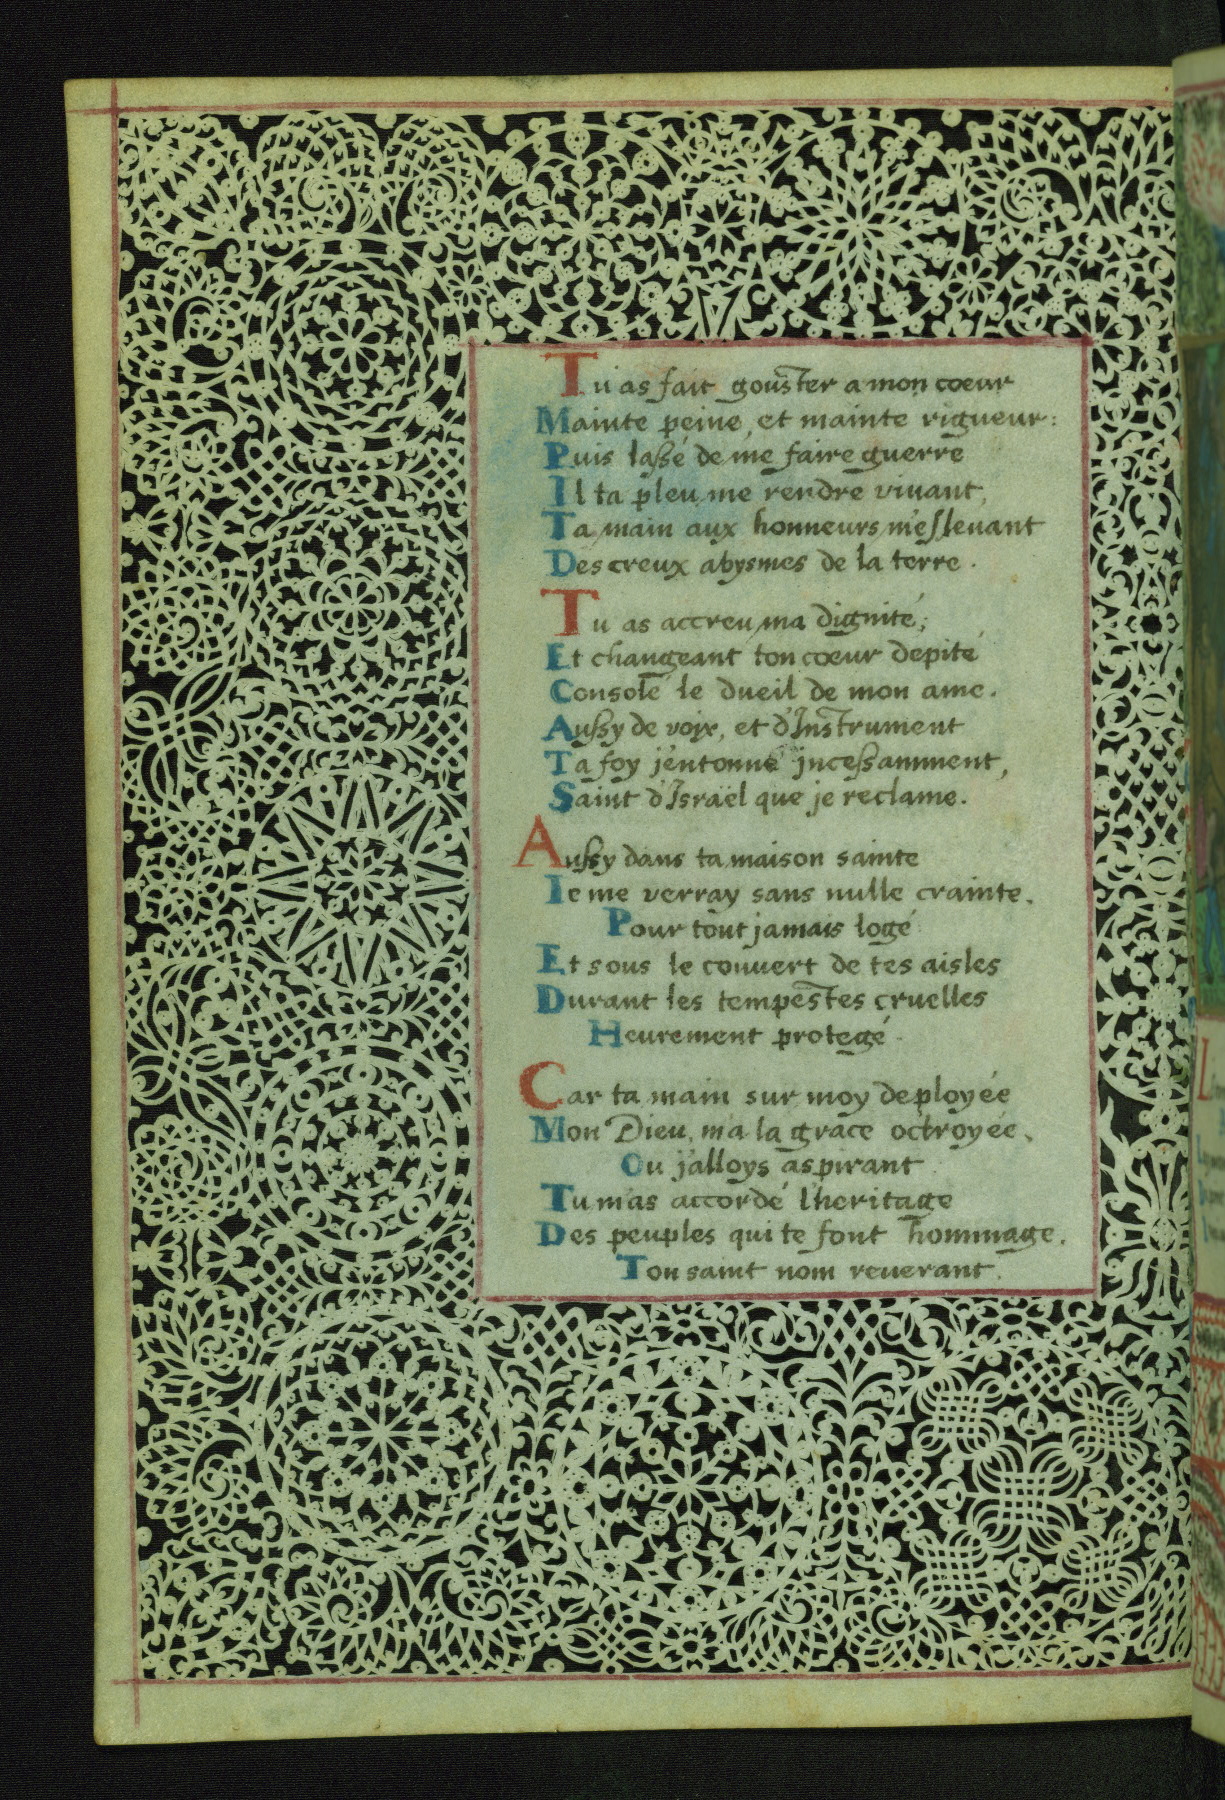 Tu as fait gouster a mon coeur
Mainte peine, et mainte rigueur:
Puis lassé de me faire guerre
Il ta pleu me rendre vivant,
Ta main aux honneurs m'eslevant
Des creux abysmes de la terre.
Tu as accreu ma dignité;
Et changeant ton coeur depité
Consolé le dueil de mon ame.
Aussy de voix, et d'Instrument
Ta foy j'entonne jncessamment,
Saint d'Israël que je reclame.
Aussy dans ta maison sainte
Ie me verray sans nulle crainte.
Pour tout jamais logé
Et sous le couvert de tes aisles
Durant les tempestes cruelles
Heurement protegé.
Car ta main sur moy deployée
Mon Dieu, m'a la grace octroyée.
Ou j'alloys aspirant
Tu m'as accordé l'heritage
Des peuples qui te font hommage.
Ton saint nom reverant.